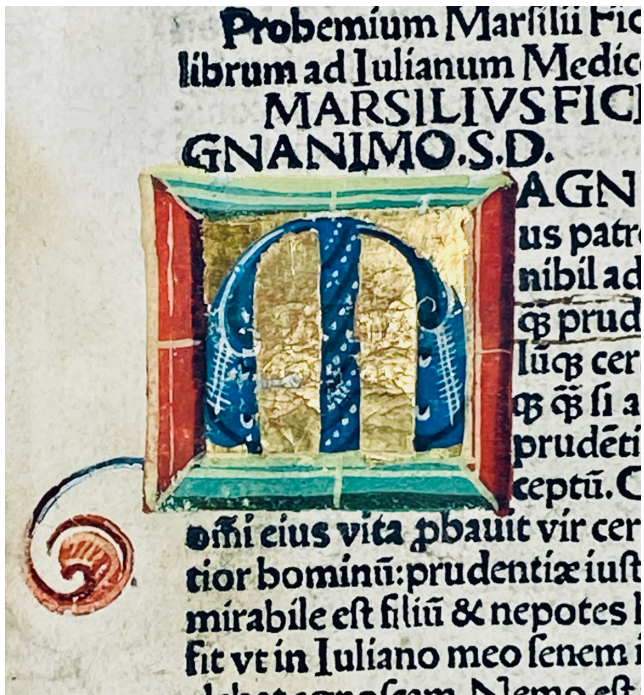 Probemium Marſilii Fic
librum ad Iulianum Medic
MARSILIVS FICI
GNANIMO.S.D.
MAGN
us patr
nibil ad
qꝫ prud
lūqꝫ cer
qꝫ qꝫ̃ ſi a
prudēti
ceptū. C
om̃i eius vita ꝓbauit vir cer
tior bominū:prudentiæ iuſt
mirabile eſt filiū & nepotes
fit vt in Iuliano meo ſenem i
debet agnoſcam. Nemo eſt